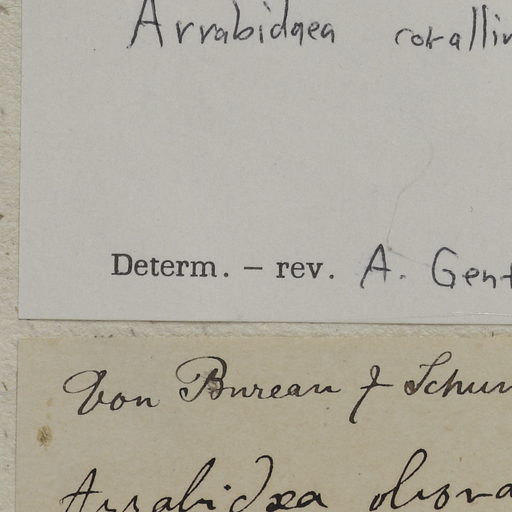 Arrabidaea corallin
Determ. – rev. A. Gent
Von Bureau & Schum
Arrabidaea obova